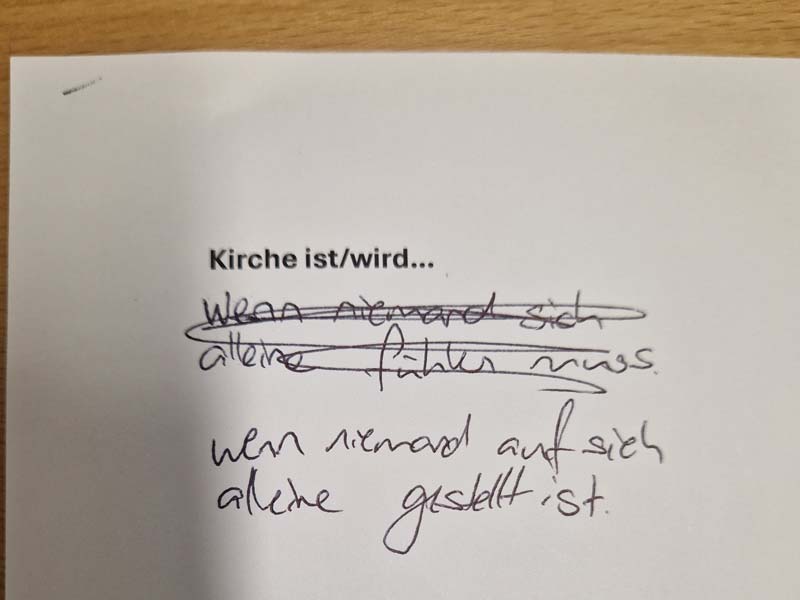 Kirche ist/wird...
Wenn niemand sich
alleine fühlen muss.
wenn niemand auf sich
alleine gestellt ist.